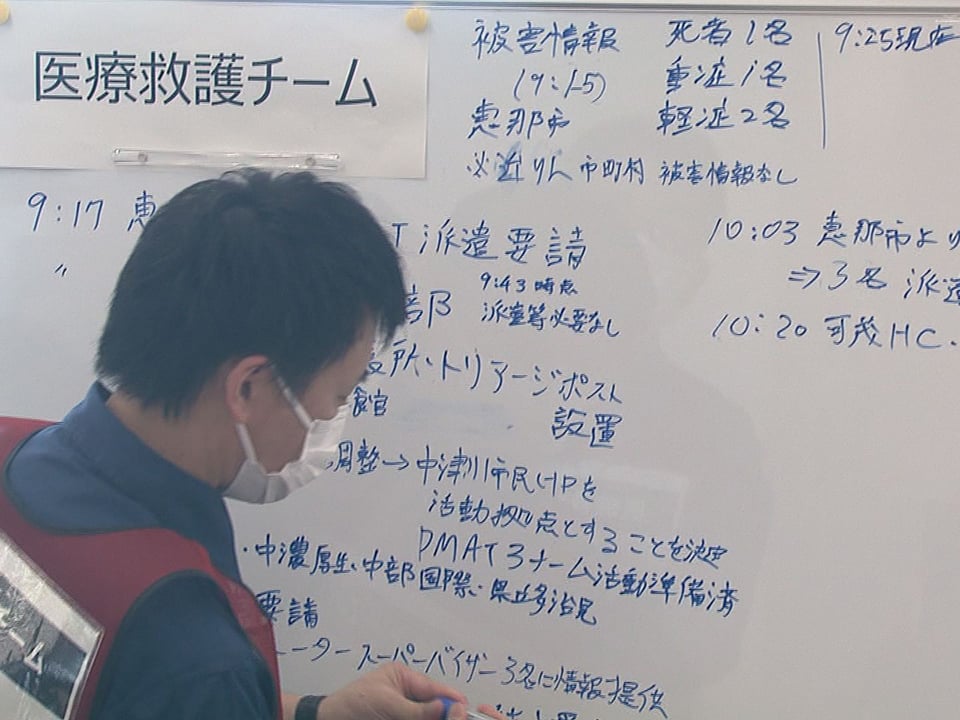 医療救護チーム
被害情報 死者1名 9:25現在
(9:15) 重症1名
恵那市 軽症2名
※近リん市町村 被害情報なし
9:17 恵
T派遣要請
〃
部 9:43時点
派遣等必要なし
所・トリアージポスト
館 設置
調整→中津川市民HPを
活動拠点とすることを決定
DMAT3チーム活動準備済
・中濃厚生、中部国際、県立多治見
要請
ータースーパーバイザー3名に情報提供
10:03 恵那市より
⇒3名 派遣
10:20 可茂HC.
ーム